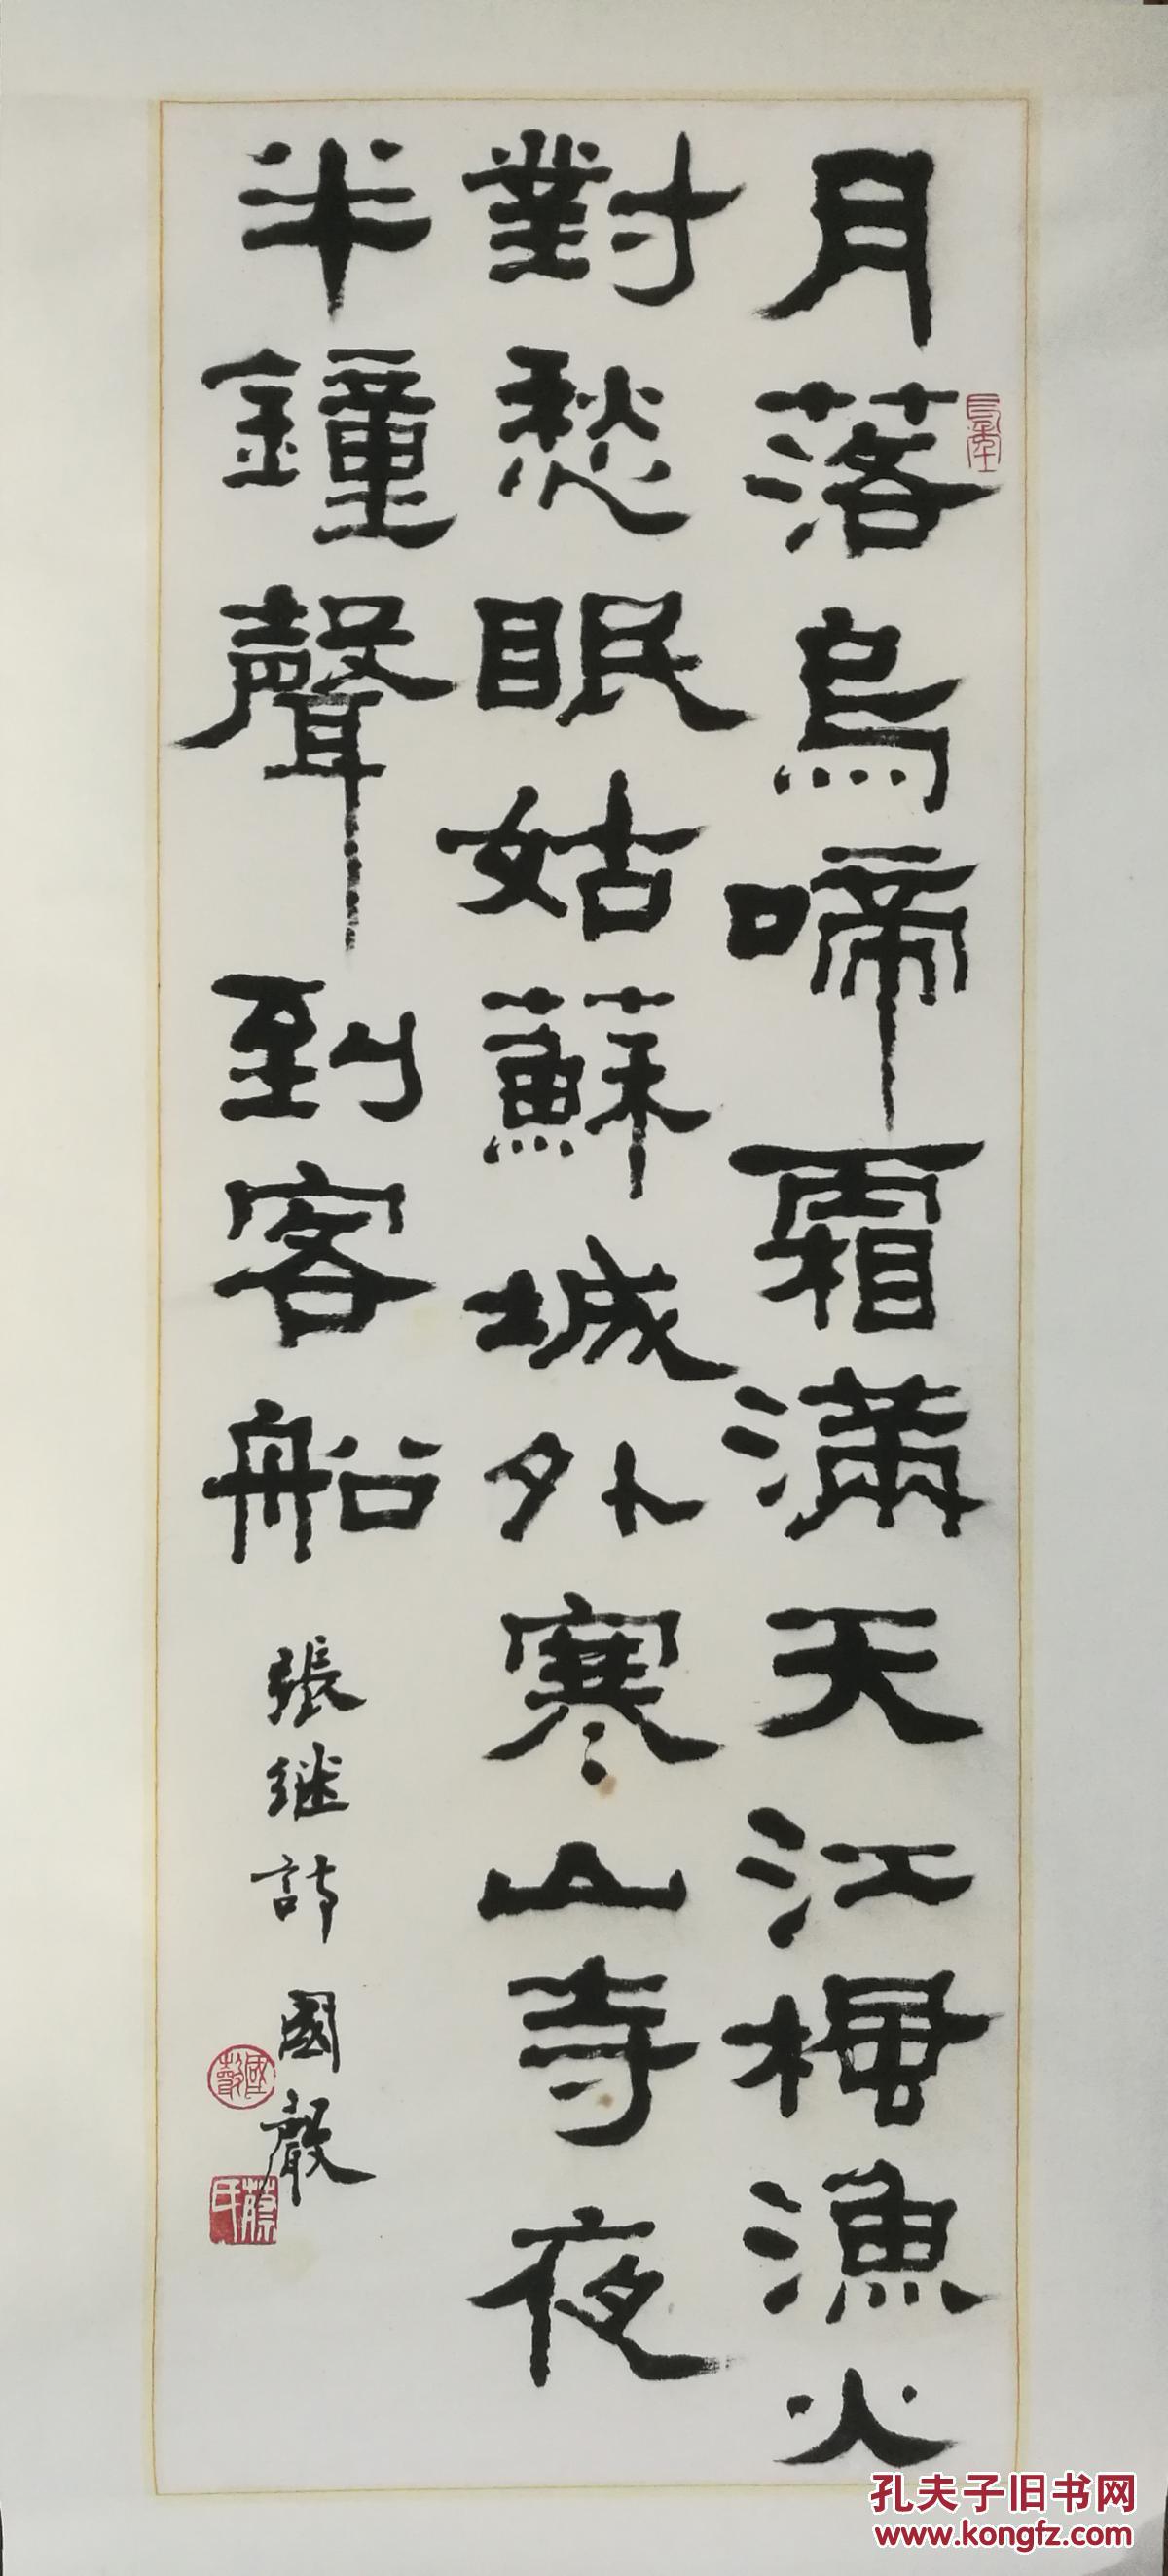 月落烏啼霜滿天江楓漁火
對愁眠姑蘇城外寒山寺夜
半鐘聲到客船
張继詩 國聲
國聲
蔡氏
孔夫子旧书网
www.kongfz.com